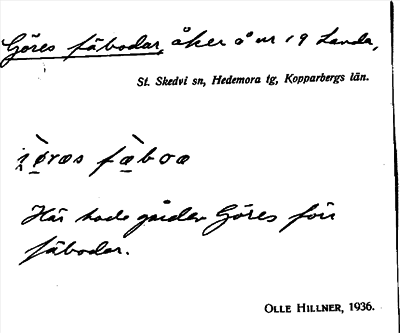 Göres fäbodar, åker å nr 19 Landa,
St. Skedvi sn, Hedemora tg, Kopparbergs län.
fäboa
Här hade gården Göres förr
fäbodar.
OLLE HILLNER, 1936.